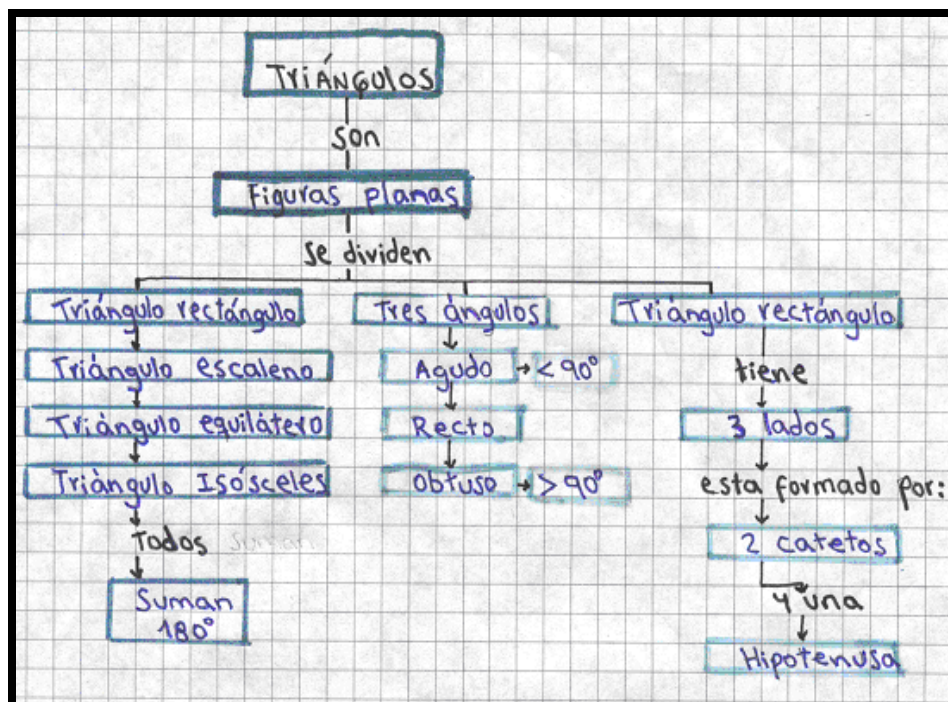 TRIÁNGULOS
son
Figuras planas
se dividen
Triángulo rectángulo
Triángulo escaleno
Triángulo equilátero
Triángulo Isósceles
Todos suman
Suman
180°
Tres ángulos
Agudo → < 90°
Recto
Obtuso → > 90°
Triángulo rectángulo
tiene
3 lados
esta formado por:
2 catetos
y una
Hipotenusa